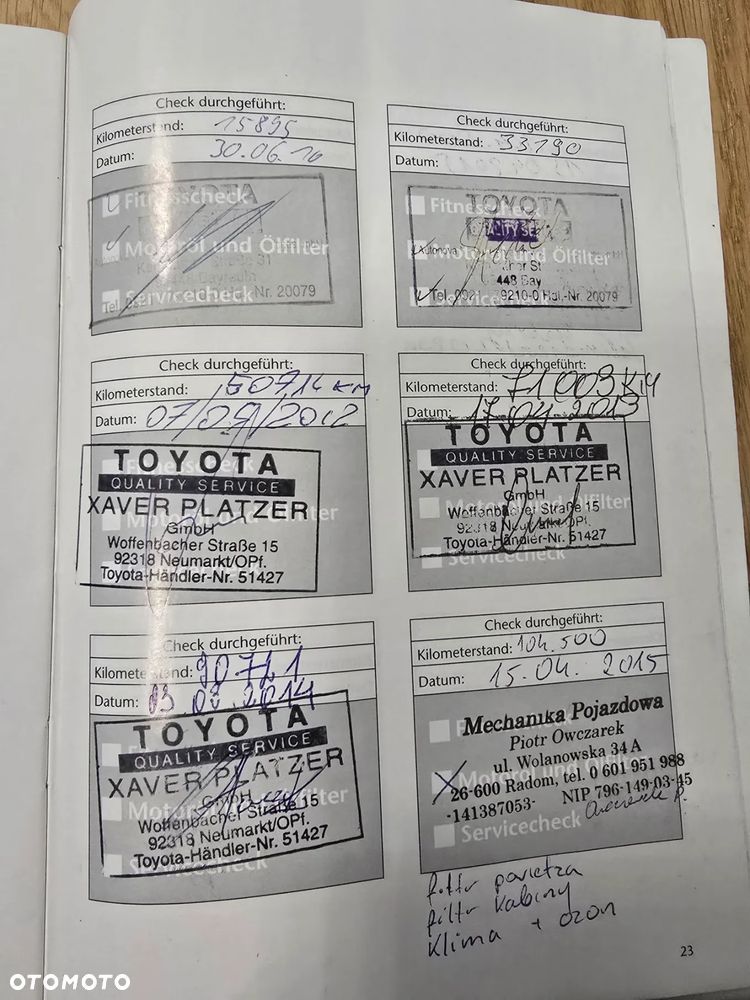 Check durchgeführt:
Kilometerstand: 15895
Datum: 30.06.10
TOYOTA
Fitnesscheck
Motoröl und Ölfilter
Servicecheck
Tel. Nr. 20079
Check durchgeführt:
Kilometerstand: 33190
Datum:
TOYOTA
Fitnesscheck
QUALITY SE
Motoröl und Ölfilter
448 Bay
Servicecheck
Tel. 092 9210-0 Hdl.-Nr. 20079
Check durchgeführt:
Kilometerstand: 50914 KM
Datum: 07/09/2012
TOYOTA
Fitnesscheck
QUALITY SERVICE
XAVER PLATZER
Motoröl und Ölfilter
GmbH
Woffenbacher Straße 15
92318 Neumarkt/OPf.
Servicecheck
Toyota-Händler-Nr. 51427
Check durchgeführt:
Kilometerstand: 71009 KM
Datum: 17.04.2013
TOYOTA
Fitnesscheck
QUALITY SERVICE
XAVER PLATZER
GmbH
Motoröl und Ölfilter
Woffenbacher Straße 15
92318 Neumarkt/OPf.
Toyota-Händler-Nr. 51427
Servicecheck
Check durchgeführt:
Kilometerstand: 90721
Datum: 03.02.2014
TOYOTA
QUALITY SERVICE
XAVER PLATZER
GmbH
Motoröl und Ölfilter
Woffenbacher Straße 15
92318 Neumarkt/OPf.
Toyota-Händler-Nr. 51427
Servicecheck
Check durchgeführt:
Kilometerstand: 104.500
Datum: 15.04.2015
Mechanika Pojazdowa
Piotr Owczarek
ul. Wolanowska 34 A
26-600 Radom, tel. 0 601 951 988
Motoröl und Ölfilter
-141387053- NIP 796-149-03-45
Servicecheck
filtr powietza
filtr kabiny
Klima + ozon
23
OTOMOTO